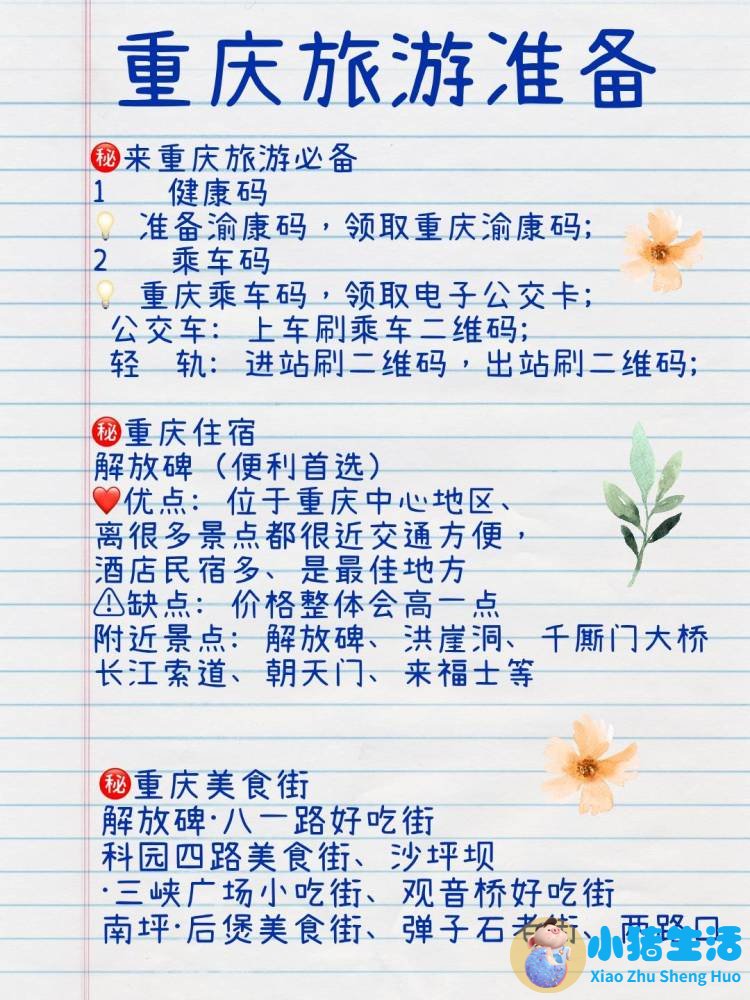 重庆旅游准备
㊙来重庆旅游必备
1 健康码
💡 准备渝康码，领取重庆渝康码;
2 乘车码
💡 重庆乘车码，领取电子公交卡;
公交车: 上车刷乘车二维码;
轻 轨: 进站刷二维码，出站刷二维码;
㊙重庆住宿
解放碑（便利首选）
❤优点: 位于重庆中心地区、
离很多景点都很近交通方便，
酒店民宿多、是最佳地方
⚠缺点: 价格整体会高一点
附近景点: 解放碑、洪崖洞、千厮门大桥
长江索道、朝天门、来福士等
㊙重庆美食街
解放碑·八一路好吃街
科园四路美食街、沙坪坝
·三峡广场小吃街、观音桥好吃街
南坪·后煲美食街、弹子石老街、两路口
小猪生活
Xiao Zhu Sheng Huo